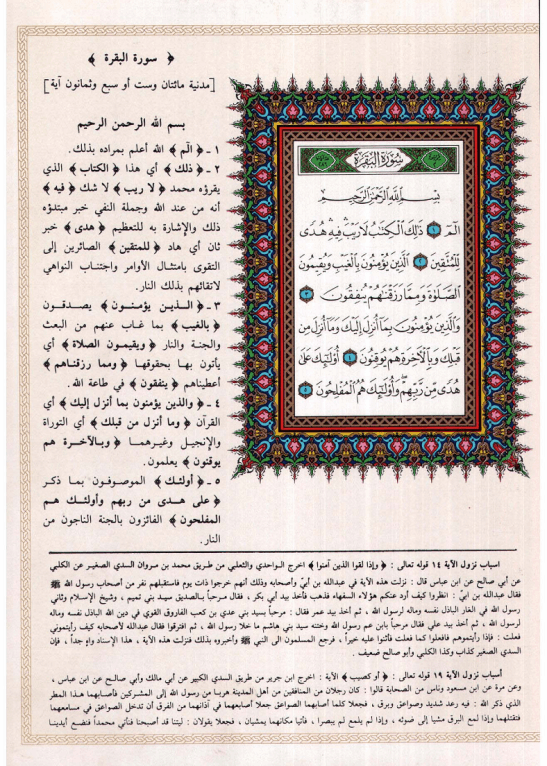 سُورَةُ الْبَقَرَةِ
بِسْمِ اللَّهِ الرَّحْمَٰنِ الرَّحِيمِ
الٓمٓ ١ ذَٰلِكَ الْكِتَٰبُ لَا رَيْبَ ۛ فِيهِ ۛ هُدًى
لِّلْمُتَّقِينَ ٢ الَّذِينَ يُؤْمِنُونَ بِالْغَيْبِ وَيُقِيمُونَ
الصَّلَوٰةَ وَمِمَّا رَزَقْنَٰهُمْ يُنفِقُونَ ٣
وَالَّذِينَ يُؤْمِنُونَ بِمَآ أُنزِلَ إِلَيْكَ وَمَآ أُنزِلَ مِن
قَبْلِكَ وَبِالْءَاخِرَةِ هُمْ يُوقِنُونَ ٤ أُو۟لَٰٓئِكَ عَلَىٰ
هُدًى مِّن رَّبِّهِمْ ۖ وَأُو۟لَٰٓئِكَ هُمُ الْمُفْلِحُونَ ٥
﴿ سورة البقرة ﴾
[مدنية مائتان وست أو سبع وثمانون آية]
بسم الله الرحمن الرحيم
١ - ﴿ الٓمٓ ﴾ الله أعلم بمراده بذلك.
٢ - ﴿ ذلك ﴾ أي هذا ﴿ الكتاب ﴾ الذي
يقرؤه محمد ﴿ لا ريب ﴾ لا شك ﴿ فيه ﴾
أنه من عند الله وجملة النفي خبر مبتدؤه
ذلك والإشارة به للتعظيم ﴿ هدى ﴾ خبر
ثان أي هاد ﴿ للمتقين ﴾ الصائرين إلى
التقوى بامتثال الأوامر واجتناب النواهي
لاتقائهم بذلك النار.
٣ - ﴿ الذين يؤمنون ﴾ يصدقون
﴿ بالغيب ﴾ بما غاب عنهم من البعث
والجنة والنار ﴿ ويقيمون الصلاة ﴾ أي
يأتون بها بحقوقها ﴿ ومما رزقناهم ﴾
أعطيناهم ﴿ ينفقون ﴾ في طاعة الله.
٤ - ﴿ والذين يؤمنون بما أنزل إليك ﴾ أي
القرآن ﴿ وما أنزل من قبلك ﴾ أي التوراة
والإنجيل وغيرهما ﴿ وبالآخرة هم
يوقنون ﴾ يعلمون.
٥ - ﴿ أولئك ﴾ الموصوفون بما ذكر
﴿ على هدى من ربهم وأولئك هم
المفلحون ﴾ الفائزون بالجنة الناجون من
النار.
أسباب نزول الآية ١٤ قوله تعالى : ﴿ وإذا لقوا الذين آمنوا ﴾ اخرج الواحدي والثعلبي من طريق محمد بن مروان السدي الصغير عن الكلبي
عن أبي صالح عن ابن عباس قال : نزلت هذه الآية في عبدالله بن أبيّ وأصحابه وذلك أنهم خرجوا ذات يوم فاستقبلهم نفر من أصحاب رسول الله ﷺ
فقال عبدالله بن أبيّ : انظروا كيف أرد عنكم هؤلاء السفهاء فذهب فأخذ بيد أبي بكر ، فقال مرحباً بالصديق سيد بني تميم ، وشيخ الإسلام وثاني
رسول الله في الغار الباذل نفسه وماله لرسول الله ، ثم أخذ بيد عمر فقال : مرحباً بسيد بني عدي بن كعب الفاروق القوي في دين الله الباذل نفسه وماله
لرسول الله ، ثم أخذ بيد علي فقال مرحباً بابن عم رسول الله وختنه سيد بني هاشم ما خلا رسول الله ، ثم افترقوا فقال عبدالله لأصحابه كيف رأيتموني
فعلت : فإذا رأيتموهم فافعلوا كما فعلت فأثنوا عليه خيراً ، فرجع المسلمون الى النبي ﷺ وأخبروه بذلك فنزلت هذه الآية ، هذا الإسناد واهٍ جداً ، فإن
السدي الصغير كذاب وكذا الكلبي وأبو صالح ضعيف .
أسباب نزول الآية ١٩ قوله تعالى : ﴿ أو كصيب ﴾ الآية : اخرج ابن جرير من طريق السدي الكبير عن أبي مالك وأبي صالح عن ابن عباس ،
وعن مرة عن ابن مسعود وناس من الصحابة قالوا : كان رجلان من المنافقين من أهل المدينة هربا من رسول الله إلى المشركين فأصابهما هذا المطر
الذي ذكر الله : فيه رعد شديد وصواعق وبرق ، فجعلا كلما أصابهما الصواعق جعلا أصابعهما في آذانهما من الفرق أن تدخل الصواعق في مسامعهما
فتقتلهما وإذا لمع البرق مشيا إلى ضوئه ، وإذا لم يلمع لم يبصرا ، فأتيا مكانهما يمشيان ، فجعلا يقولان : ليتنا قد أصبحنا فنأتي محمداً فنضع أيدينا